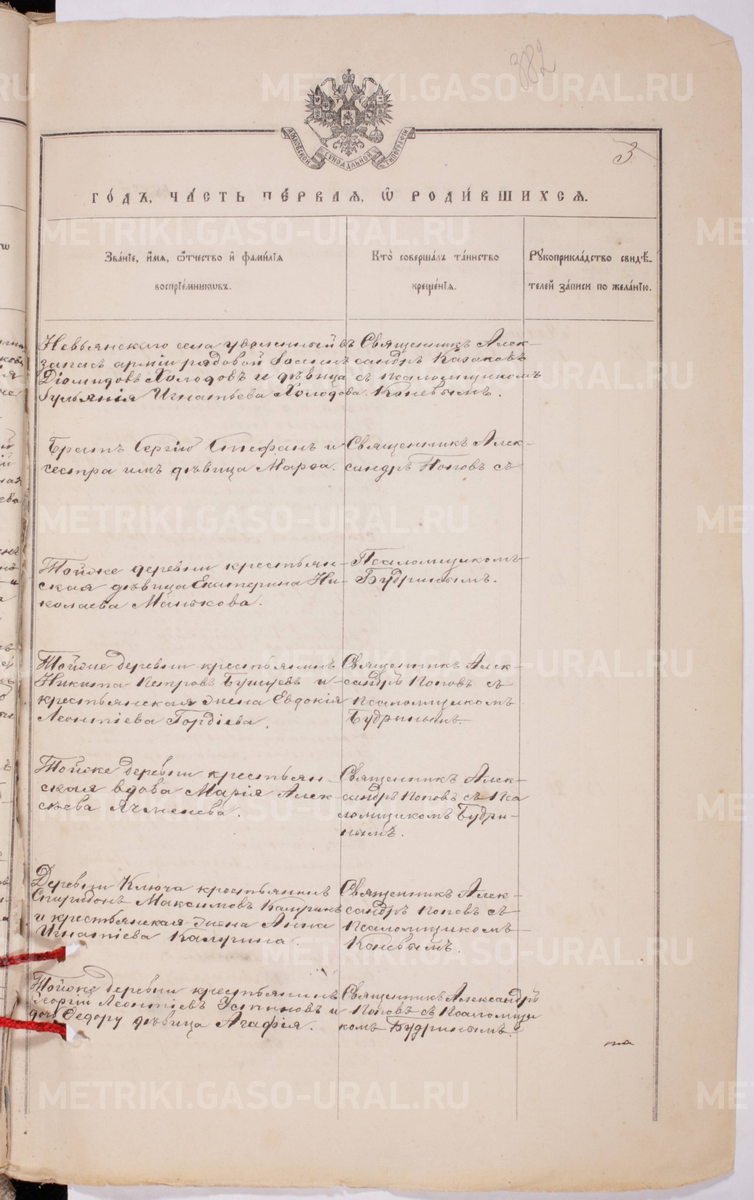 382
3
МОСКОВСКОЙ СѶНОДАЛЬНОЙ ТИПОГРАФІИ
ГО́ДЪ, ЧА́СТЬ ПЕ́РВАЯ, Ѡ РОДИ́ВШИХСЯ.
Зва́нїе, и́мя, ѻ́тчество и фами́лїя
воспрїе́мниковъ.
Кто̀ соверша́лъ та́инство
креще́нїя.
Рꙋкоприкла́дство свидѣ́-
телей за́писи по жела́нїю.
Невьянскаго села уволенный въ
запасъ арміи рядовой
Діомидовъ Холодовъ и дѣвица
Іульянія Игнатьева Холодова.
Священникъ Алек-
сандръ Казаковъ
съ псаломщикомъ
Коневымъ.
Братъ Сергій Стефанъ и
сестра имъ дѣвица Марѳа.
Священникъ Алек-
сандръ Поповъ съ
Тойже деревни крестьян-
ская дѣвица Екатерина Ни-
колаева Манькова.
Псаломщикомъ
Будринымъ.
Тойже деревни крестьянинъ
Никита Петровъ и
крестьянская жена Евдокія
Леонтіева Гордіева.
Священникъ Алек-
сандръ Поповъ съ
псаломщикомъ
Будринымъ.
Тойже деревни крестьян-
ская вдова Марія Алек-
сѣева Ячменева.
Священникъ Алек-
сандръ Поповъ съ Пса
ломщикомъ Будри-
нымъ.
Деревни Ключа крестьянинъ
Спиридонъ Максимовъ Калугинъ
и крестьянская жена Анна
Игнатіева Калугина.
Священникъ Алек-
сандръ Поповъ съ
Псаломщикомъ
Коневымъ.
Тойже деревни крестьянинъ
Георгій Леонтіевъ Устиновъ и
Ѳедору дѣвица Агафія.
Священникъ Александръ
Поповъ съ Псаломщи
комъ Будринымъ.
METRIKI.GASO-URAL.RU